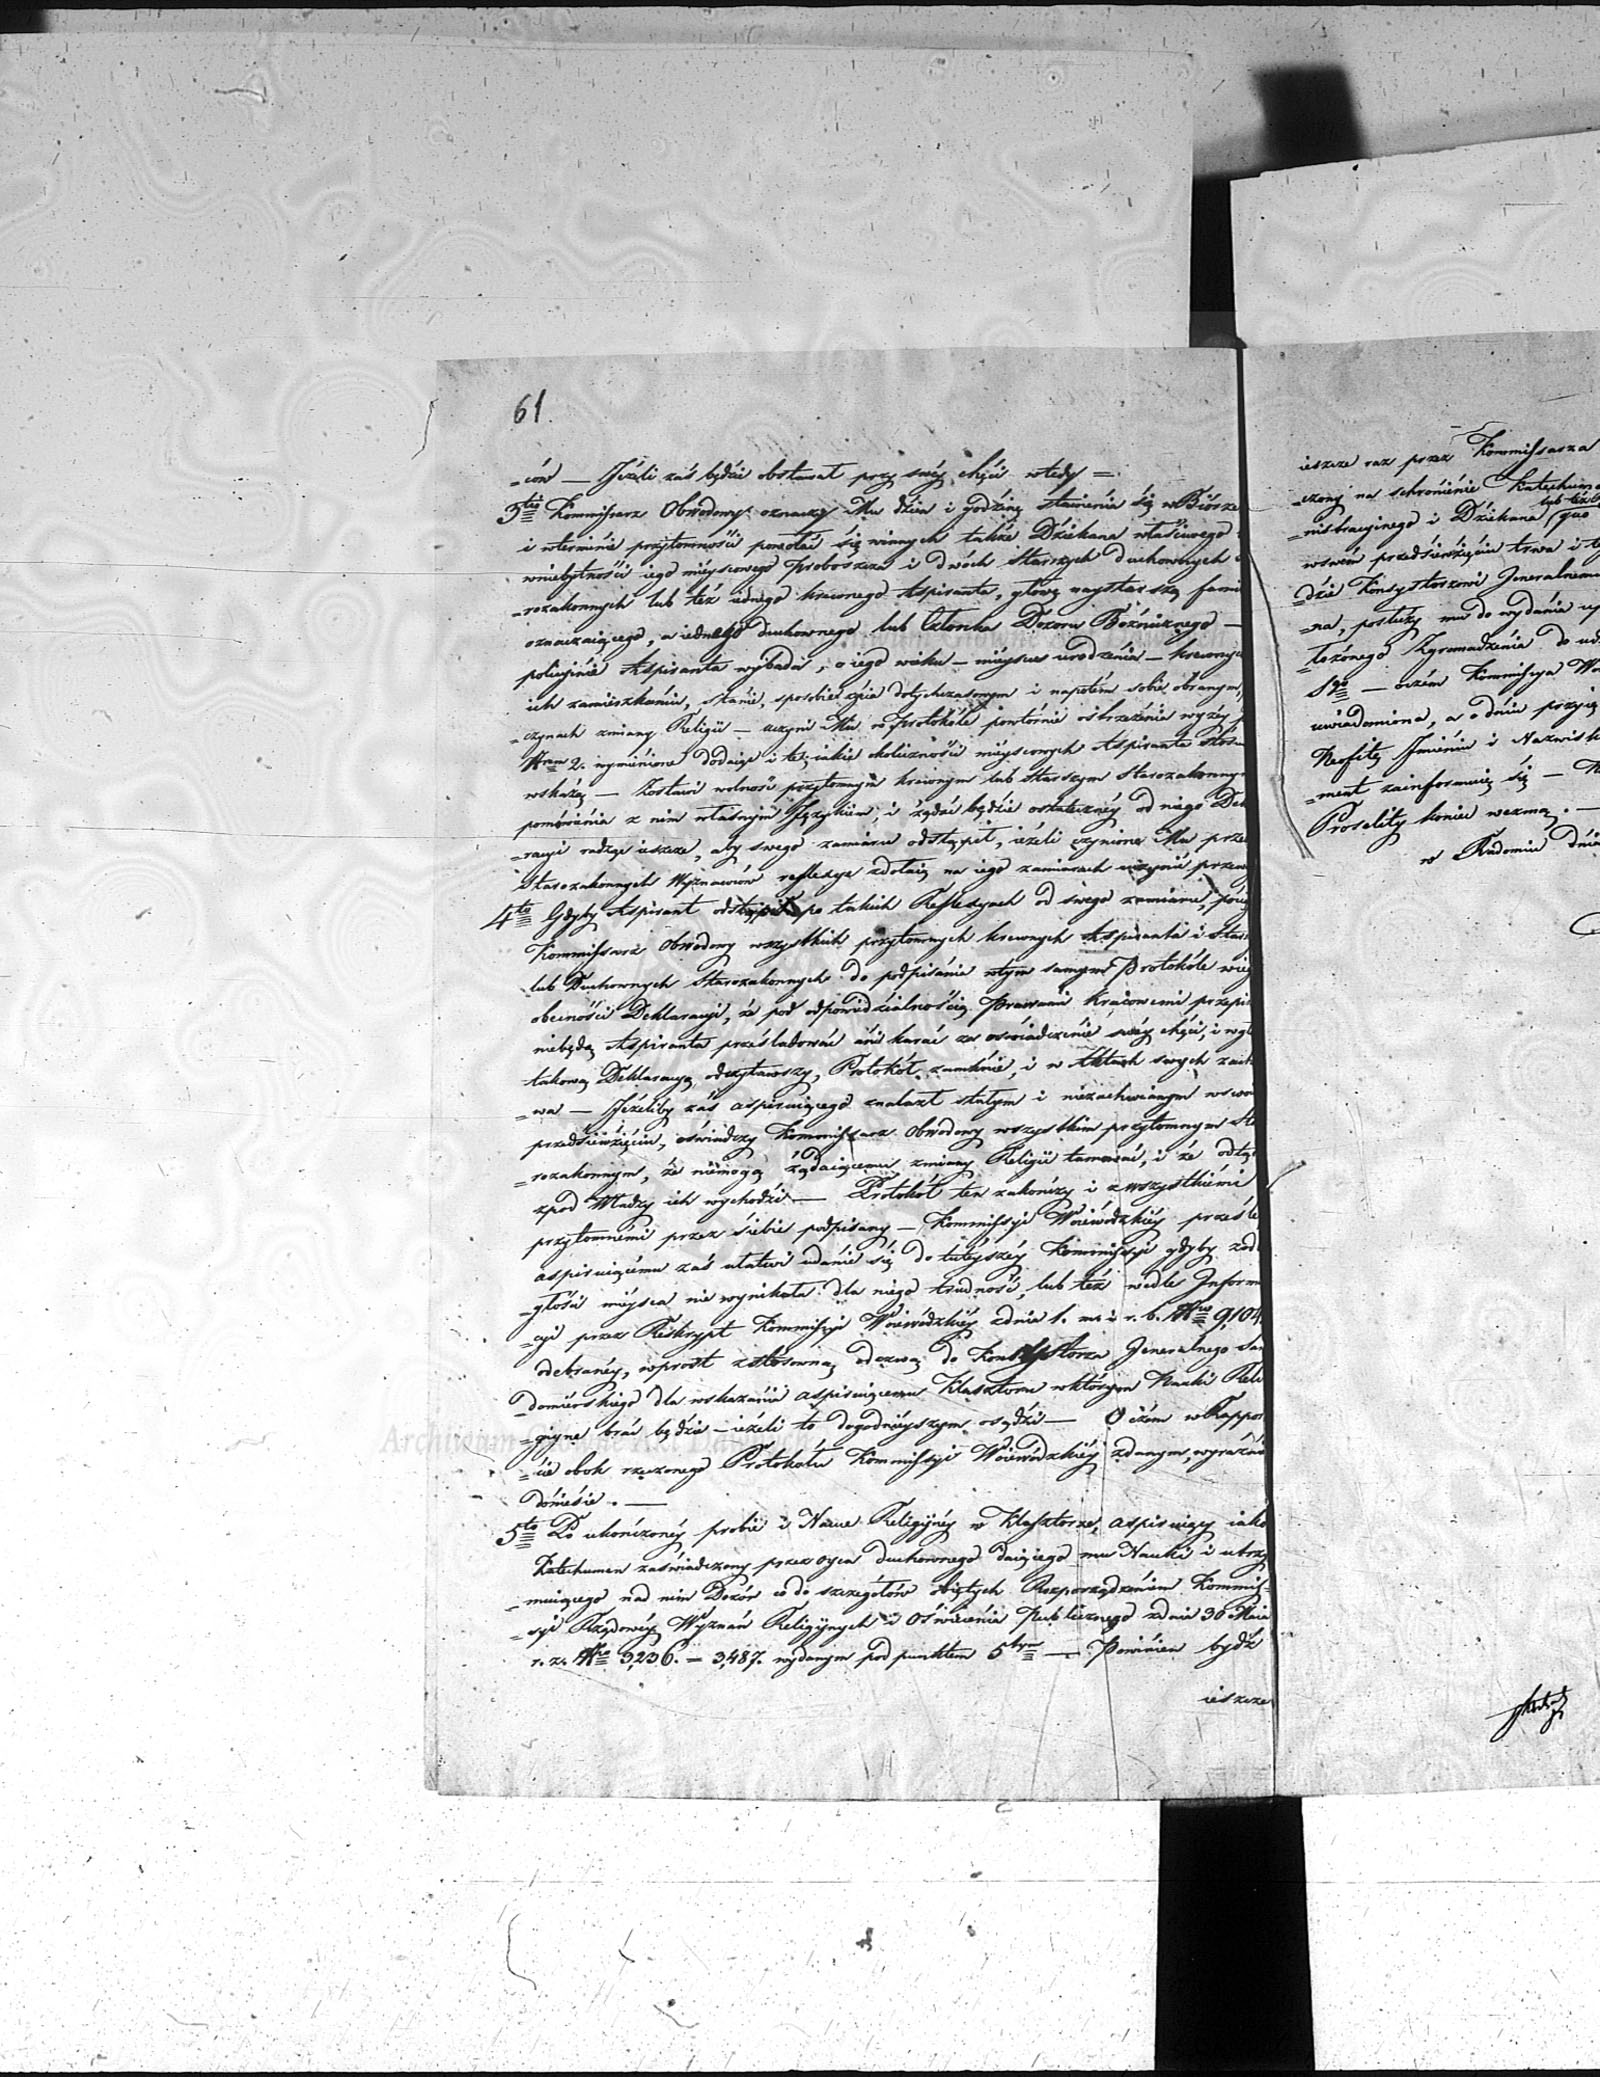 61.
=ców — Jeżeli zaś będzie obstawał przy swéy chęci wtedy =
3tio Kommissarz Obwodowy oznaczy Mu dzień i godzinę stawienia się w Biórze
i wterminie przytomności powołać się winnych także Dziekana właściwego
wniebytności iego mieyscowego Proboszcza i dwóch Starszych duchownych
=rozakonnych lub też iednego krewnego Aspiranta, głowę naystarszą fami
oznaczaiącego, a iednego duchownego lub Członka Dozoru Bóżniczego —
policyjnie Aspiranta wybada, o iego wieku — mieyscu urodzenia — krewnych
ich zamieszkaniu, stanie, sposobie życia dotychczasowym i napotém sobie obranym,
=czynach zmiany Religii — uczyni Mu w Protokóle powtórnie ostrzeżenia wyżéy
Nrem 2. wymienione dodaiąc i te, iakie okoliczności mieyscowych Aspiranta
wskażą — Zostawi wolność przytomnym krewnym lub Starszym Starozakonnym
pomówienia z nim własnym Językiem, i żądać będzie ostatecznéy od niego Dek
=racyi radząc ieszcze, aby swego zamiaru odstąpił, ieżeli czynione Mu przez
Starozakonnych Wyznawców reflexye zdołaią na iego zamiarach uczynić
4to Gdyby Aspirant odstąpił po takich Reflexyach od swego zamiaru,
Kommissarz Obwodowy wszystkich przytomnych krewnych Aspiranta i Star
lub Duchownych Starozakonnych do podpisania wtym samym Protokóle
obecności Deklaracyi, że pod odpowiedzialnością Prawami Kraiowemi przepis
niebędą Aspiranta prześladować ani karać za oświadczenie swéy chęci, i
takową Deklaracyą odczytawszy, Protokół zamknie, i w Aktach swych zach
=wa — Jeżeliby zaś aspiruiącego znalazł stałym i niezachwianym wswo
przedsięwzięciu, oświadczy Kommissarz Obwodowy wszystkim przytomnym Sta
=rozakonnym, że niemogą żądaiącemu zmiany Religii tamować, i że odtąd
zpod Władzy ich wychodzi — Protokół ten zakończy i zwszystkiémi
przytomnémi przez siebie podpisany — Kommissyi Woiewódzkiéy prześle
aspiruiącemu zaś ułatwi udanie się do tuteyszéy Kommissyi gdyby zod
=głości mieysca nie wynikała dla niego trudność, lub też wedle Informa
=cyi przez Reskrypt Kommissyi Woiewódzkiéy zdnia 1. m. i r. b. Nro 9,104
odebranéy, wprost zstosowną odezwą do Konsystorza Jeneralnego San
=domierskiego dla wskazania aspiruiącemu Klasztoru wktórym Nauki Reli
=giyne brać będzie — ieżeli to dogodnieyszym osądzi — O czém wRappor
=cie obok rzeczonego Protokółu Kommissyi Woiewódzkiéy zdanym, wyraźnie
doniesie. —
5to Po ukończonéy probie i Nauce Religiynéy w Klasztorze, aspiruiący iako
Katechumen zaświadczony przez oyca duchownego daiącego mu Nauki i utrzy
=muiącego nad nim Dozór co do szczegółów obiętych Rozporządzeniem Kommis=
=syi Rządowéy Wyznań Religiynych i Oświecenia Publicznego zdnia 30 Maia
r. z. Nro 3,236. = 3,487. wydanym pod punktem 5tym — Powinien bydź
ieszcze
ieszcze raz przez Kommissarza
=czony na schronienie Katechumen
lub też
=nistracyinego i Dziekana
wswém przedsięwzięciu trwa i
=dzie Konsystorzowi Jeneralnemu
=na, posłuży mu do wydania
=łożonego Zgromadzenia do
— oczém Kommissya Wo
uwiadomiona, a o dniu przyię
Neofitę Imieniu i Nazwisk
=ment zainformuie się —
Proselity koniec wezmą. —
w Radomiu dnia